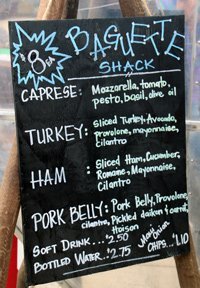 $8ea
BAGUETTE
SHACK
CAPRESE: Mozzarella, tomato,
pesto, basil, olive oil
TURKEY: Sliced Turkey, Avocado,
provolone, mayonnaise,
cilantro
HAM : Sliced Ham, Cucumber,
Romaine, Mayonnaise,
Cilantro
PORK BELLY: Pork Belly, Provolone,
cilantro, Pickled daikon & carrot,
Hoison
SOFT DRINK... $2.50
BOTTLED WATER.. $2.75
Maui Onion
CHIPS.. $1.10